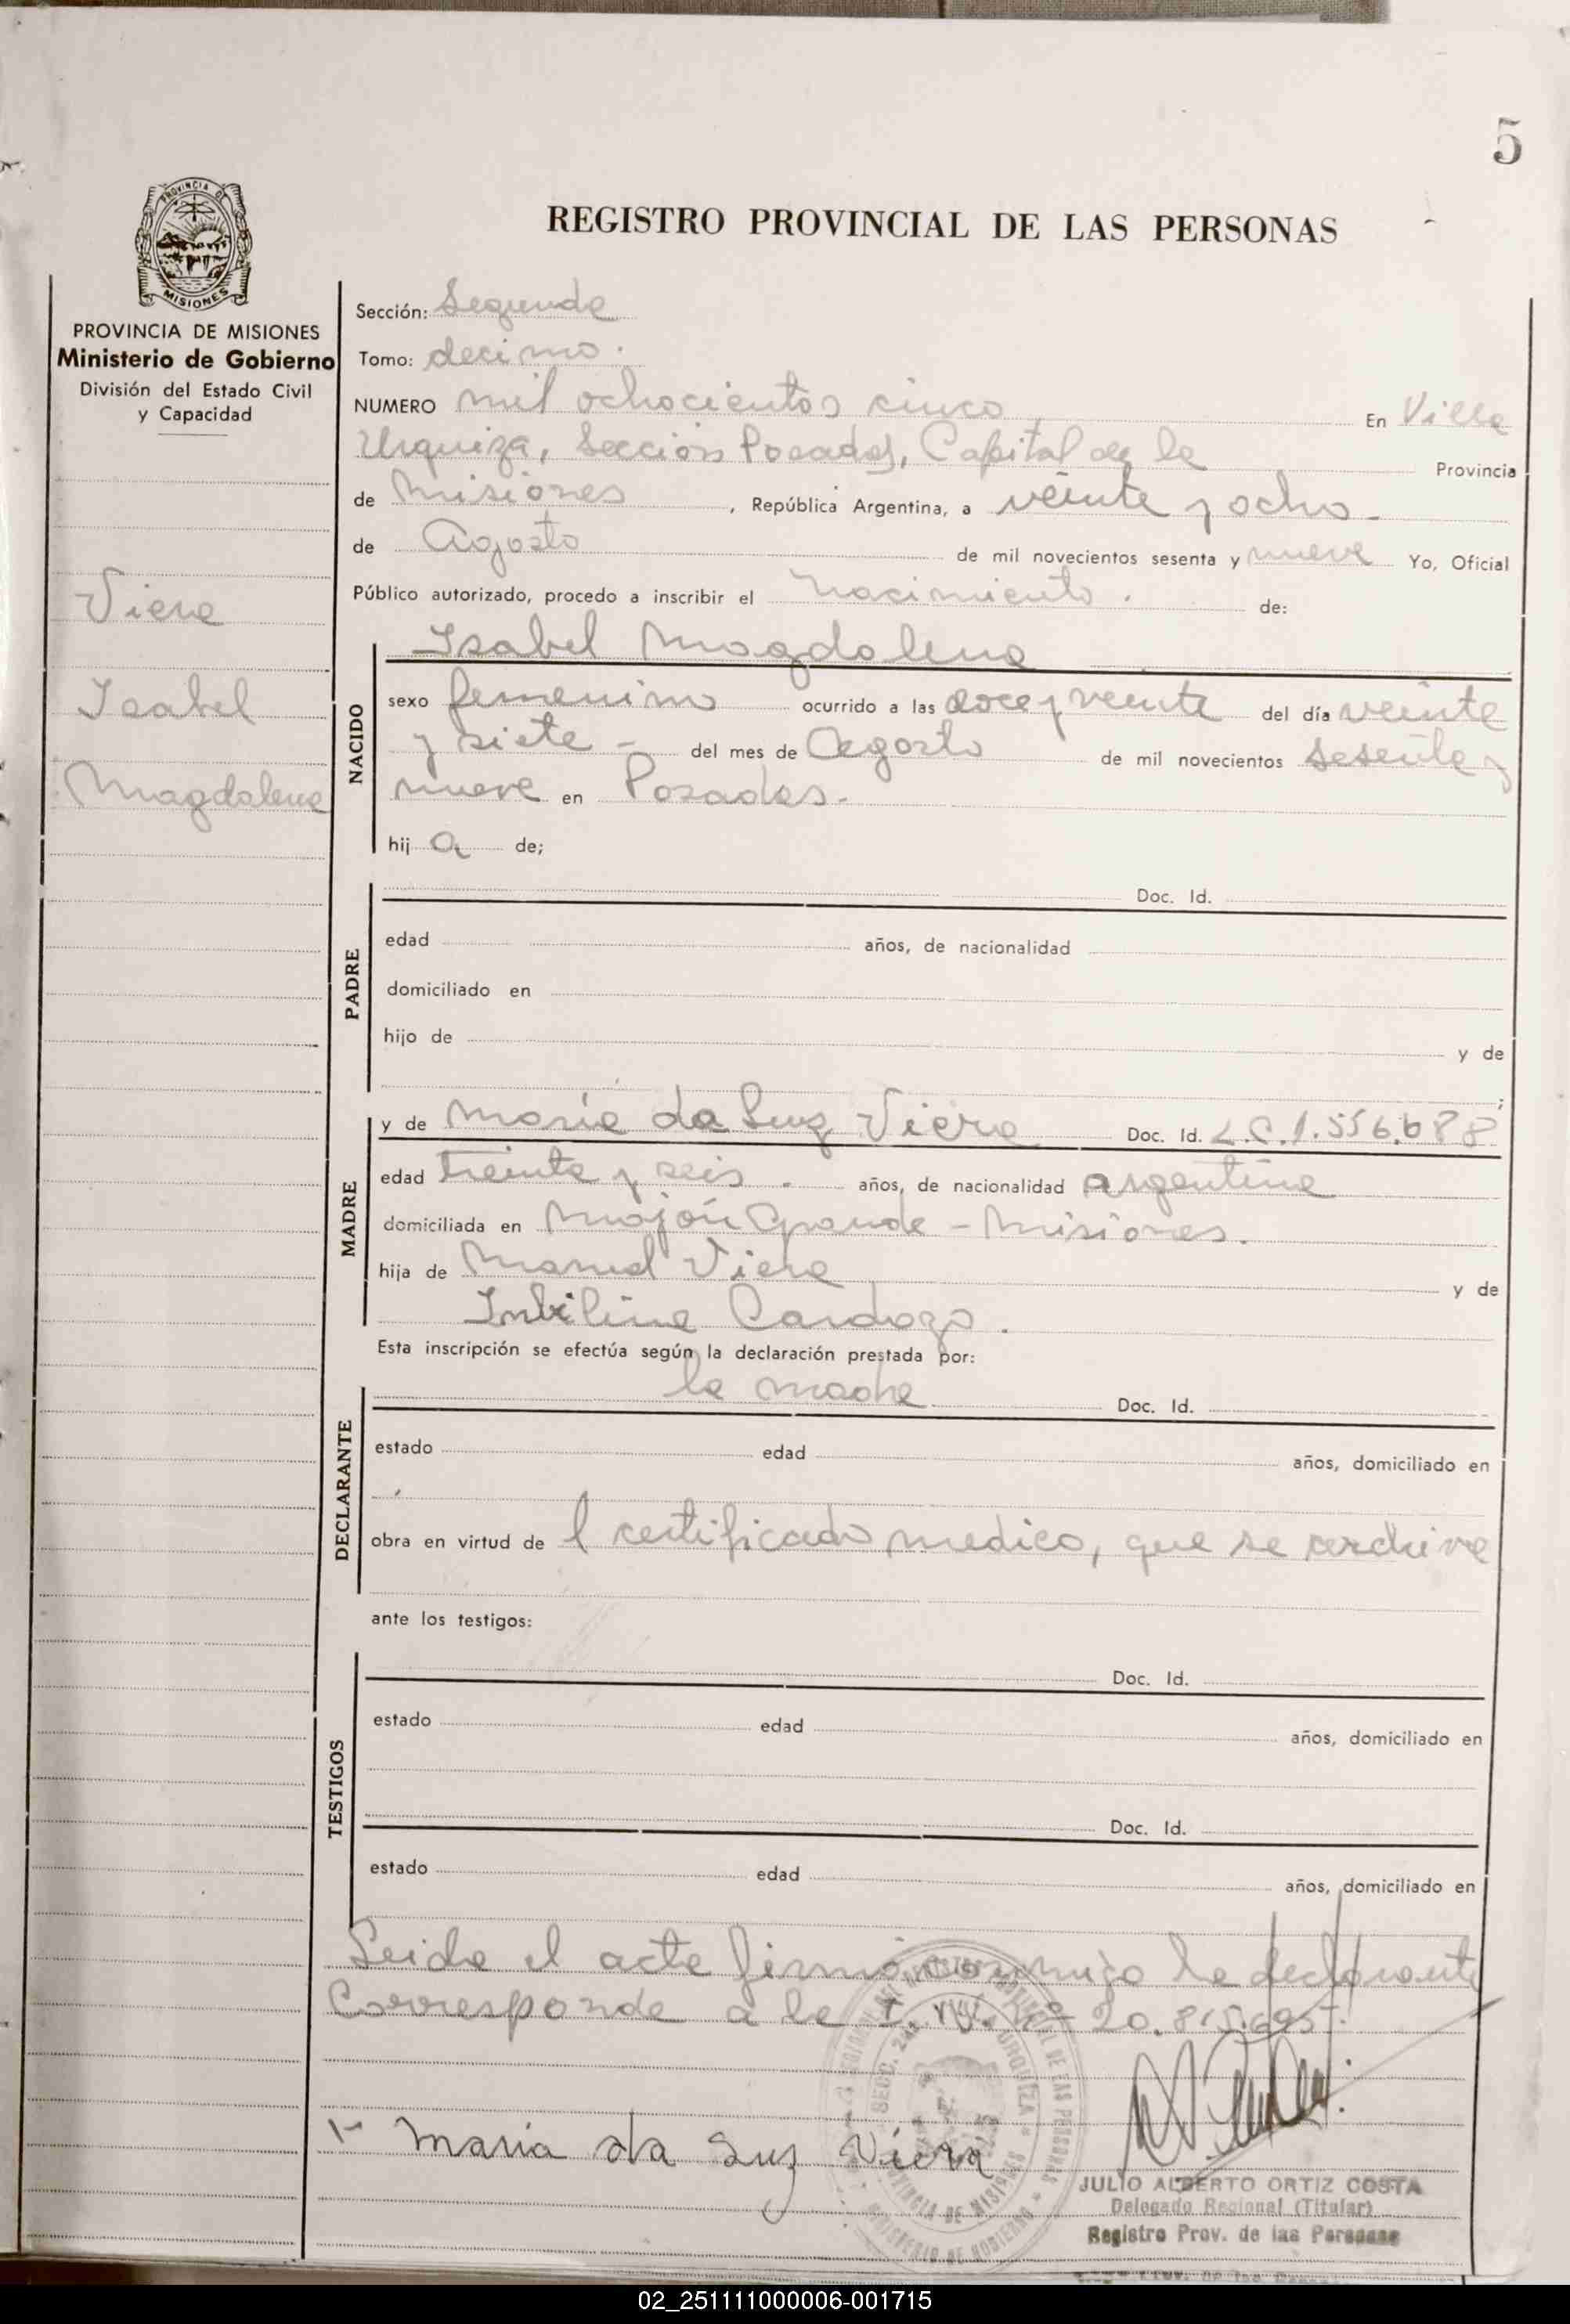 5
PROVINCIA DE
MISIONES
REGISTRO PROVINCIAL DE LAS PERSONAS
PROVINCIA DE MISIONES
Ministerio de Gobierno
División del Estado Civil
y Capacidad
Viera
Isabel
Magdalena
Sección: Segunda
Tomo: decimo.
NUMERO mil ochocientos cinco En Villa
Urquiza, Sección Posadas, Capital de la Provincia
de Misiones, República Argentina, a veinte y ocho -
de Agosto de mil novecientos sesenta y nueve Yo, Oficial
Público autorizado, procedo a inscribir el nacimiento. de:
NACIDO
Isabel Magdalena
sexo femenino ocurrido a las doce y veinte del día veinte
y siete - del mes de Agosto de mil novecientos sesenta y
nueve en Posadas.-
hij a de;
PADRE
Doc. Id.
edad años, de nacionalidad
domiciliado en
hijo de y de
;
MADRE
y de María da Luz Viera Doc. Id. L.C.1.556.688
edad treinta y seis. años, de nacionalidad argentina
domiciliada en Mojón Grande - Misiones.
hija de Manuel Viera y de
Cardozo.
Esta inscripción se efectúa según la declaración prestada por:
DECLARANTE
la madre Doc. Id.
estado edad años, domiciliado en
obra en virtud de l certificado medico, que se archiva
ante los testigos:
TESTIGOS
Doc. Id.
estado edad años, domiciliado en
Doc. Id.
estado edad años, domiciliado en
Leida el acta firmó conmigo la declarante
Corresponde a la Nº 20.815.695.-
1- Maria da Luz Viera
JULIO ALBERTO ORTIZ COSTA
Delegado Regional (Titular)
Registro Prov. de las Personas
02_251111000006-001715